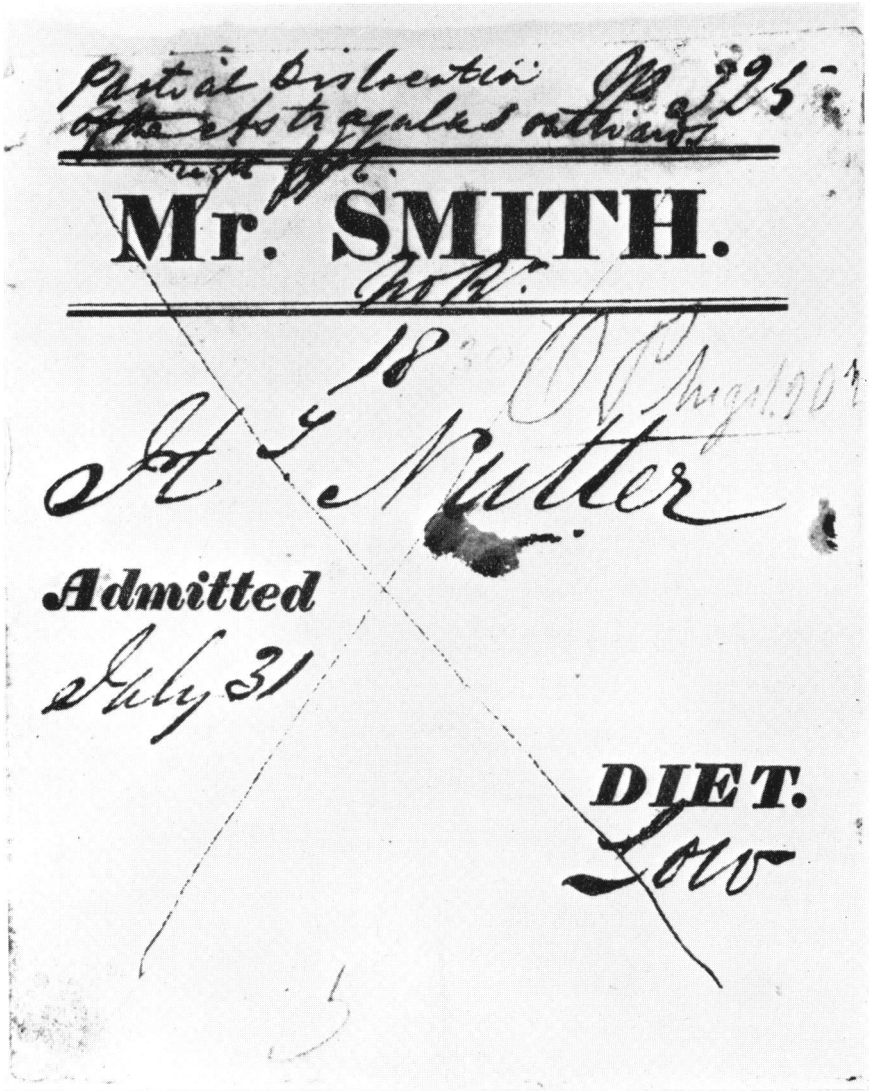 Partial Dislocation 325
of the Astragalus outwards
right foot.
Mr. SMITH.
No
18 30 OP
H T Nutter
Admitted
July 31
DIET.
Low